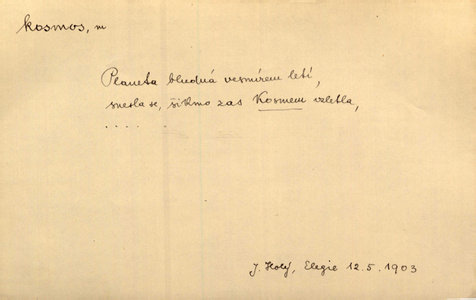 kosmos, m
Planeta bludná vesmírem letí,
snesla se, šikmo zas Kosmem vzletla,
. . . .
J. Holý, Elegie 12. 5. 1903